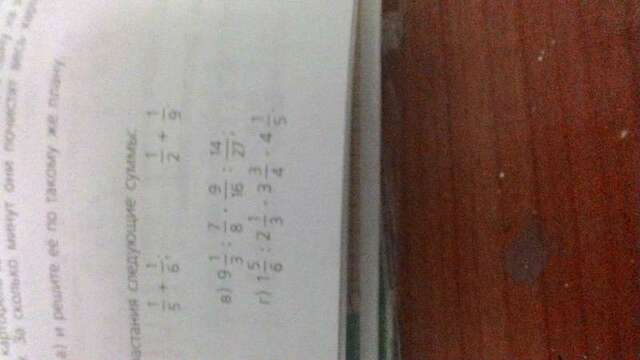 За сколько минут они почистят весь
а) и решите её по такому же плану
растания следующие суммы:
1/5 + 1/6; 1/2 + 1/9
в) 9 1/3 : 7/8 · 9/16 : 14/27;
г) 1 5/6 : 2 1/3 · 3 3/4 · 4 1/5.